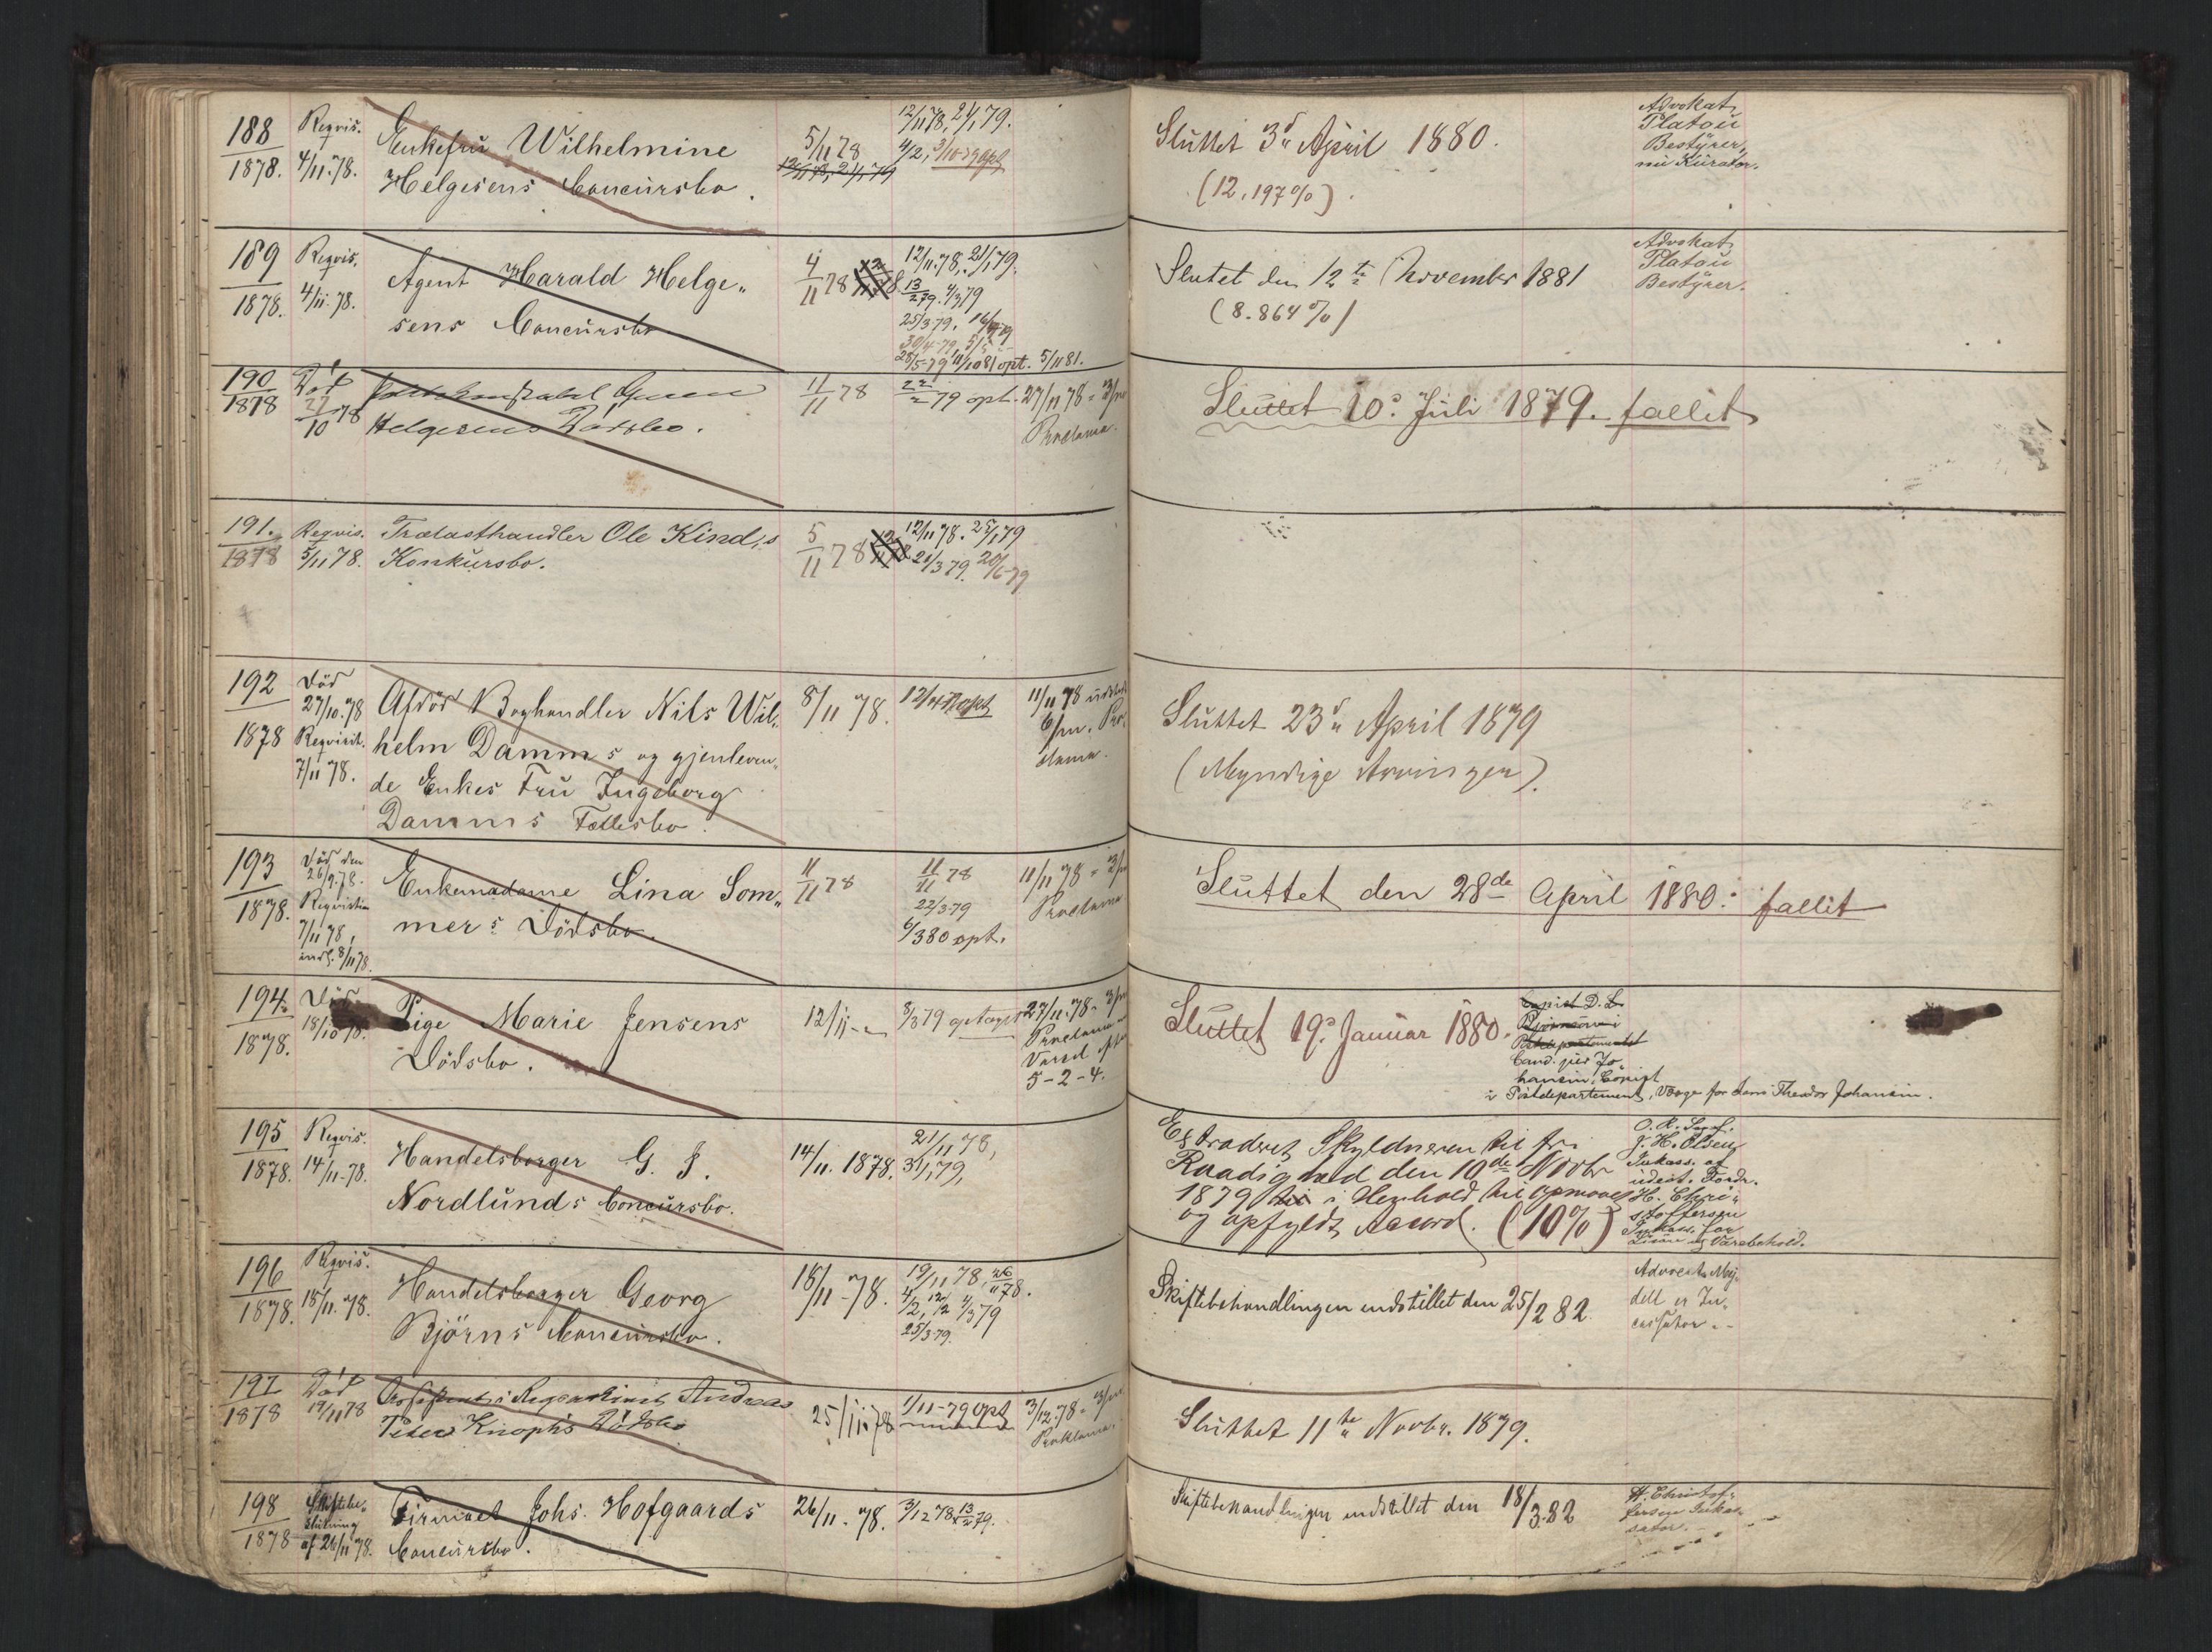 188
1878.
Reqvis.
4/11.78.
Enkefru Wilhelmine
Helgesens Concursbo.
5/11 78
12/11 78, 21/1 79
12/11 78, 21/1 79.
4/2, 3/10-79 opt
Sluttet 3d April 1880.
(12,197%).
Advokat
Platou
Bestyrer,
nu Kurator.
189
1878.
Reqvis.
4/11.78.
Agent Harald Helge„
sens Concursbo
4/11 78
12/11.78, 21/1 79.
13/2 79. 4/3 79
25/3 79.
30/4-79
28/5-79 11/10 81 opt. 5/11 81.
Slutet den 12te November 1881
(8.864%)
Advokat
Platou
Bestyrer.
190
1878
Död
27/10 78
Helgesens Dödsbo.
11/11 78
22/2 79 opt.
27/11 78 = 3/m
Proclama.
Sluttet 10. Juli 1879. fallit
191.
1878
Reqvis.
5/11 78.
Trælasthandler Ole Kind's
Konkursbo.
5/11 78
12/11 78. 25/1 79
21/3 79. 20/6-79
192
1878
Död
27/10.78
Reqvirit.
7/11 78.
Afdöd Boghandler Nils Wil„
helm Damms og gjenleven„
de Enkes Fru Ingeborg
Damms Fællesbo.
8/11 78.
11/11 78
6/m. Pro„
clama.
Sluttet 23d April 1879
(Myndige Arvinger).
193
1878.
Död den
26/9.78.
7/11 78,
indl. 8/11 78.
Enkemadame Lina Som„
mers Dödsbo.
11/11 78
11/11 78
22/3-79
6/3 80 opt.
11/11 78 = 3/m
Proclama
Sluttet den 28de April 1880: fallit
194.
1878.
Död
18/10 78.
Pige Marie Jensens
Dödsbo.
12/11
8/3 79 optaget
27/11.78 = 3/m
Proclama
5-2-4.
Sluttet 19. Januar 1880.
Copist D. L.
Cand. jur Jo
hansen, Copist
i Postdepartement, Værge for Jens Theodor Johansen.
195
1878.
Reqvis.
14/11-78.
Handelsborger G. J.
Nordlunds Concursbo.
14/11. 1878.
21/11 78,
31/1 79,
Extraderet Skyldneren til fri
Raadighed den 10de Novbr
1879 i Henhold til opnaaet
og opfyldt Accord. (10%)
O. R. Sagf.
J. H. Olsen
Inkass. af
udest. Fordr.
H. Chri„
stoffersen
Inkass. for
196
1878.
Reqvis.
18/11.78.
Handelsborger Georg
Björns Concursbo.
18/11-78.
19/11 78, 26/11 78.
4/2, 12/2 4/3 79
25/3 79.
Skiftebehandlingen indstillet den 25/2 82
197
1878
Död
19/11 78
Andreas
Peter Knophs Dödsbo
25/11.78
1/11-79 opt
3/12.78 = 3/m
Proklama.
Sluttet 11te Novbr. 1879.
198
1878
Skiftebe„
slutning
af 26/11 78.
Firmaet Johs. Hofgaards
Concursbo.
26/11.78.
3/12 78, 13/2 79.
Skiftebehandlingen indstillet den 18/3.82
H. Christof„
fersen Inkas„
sator.